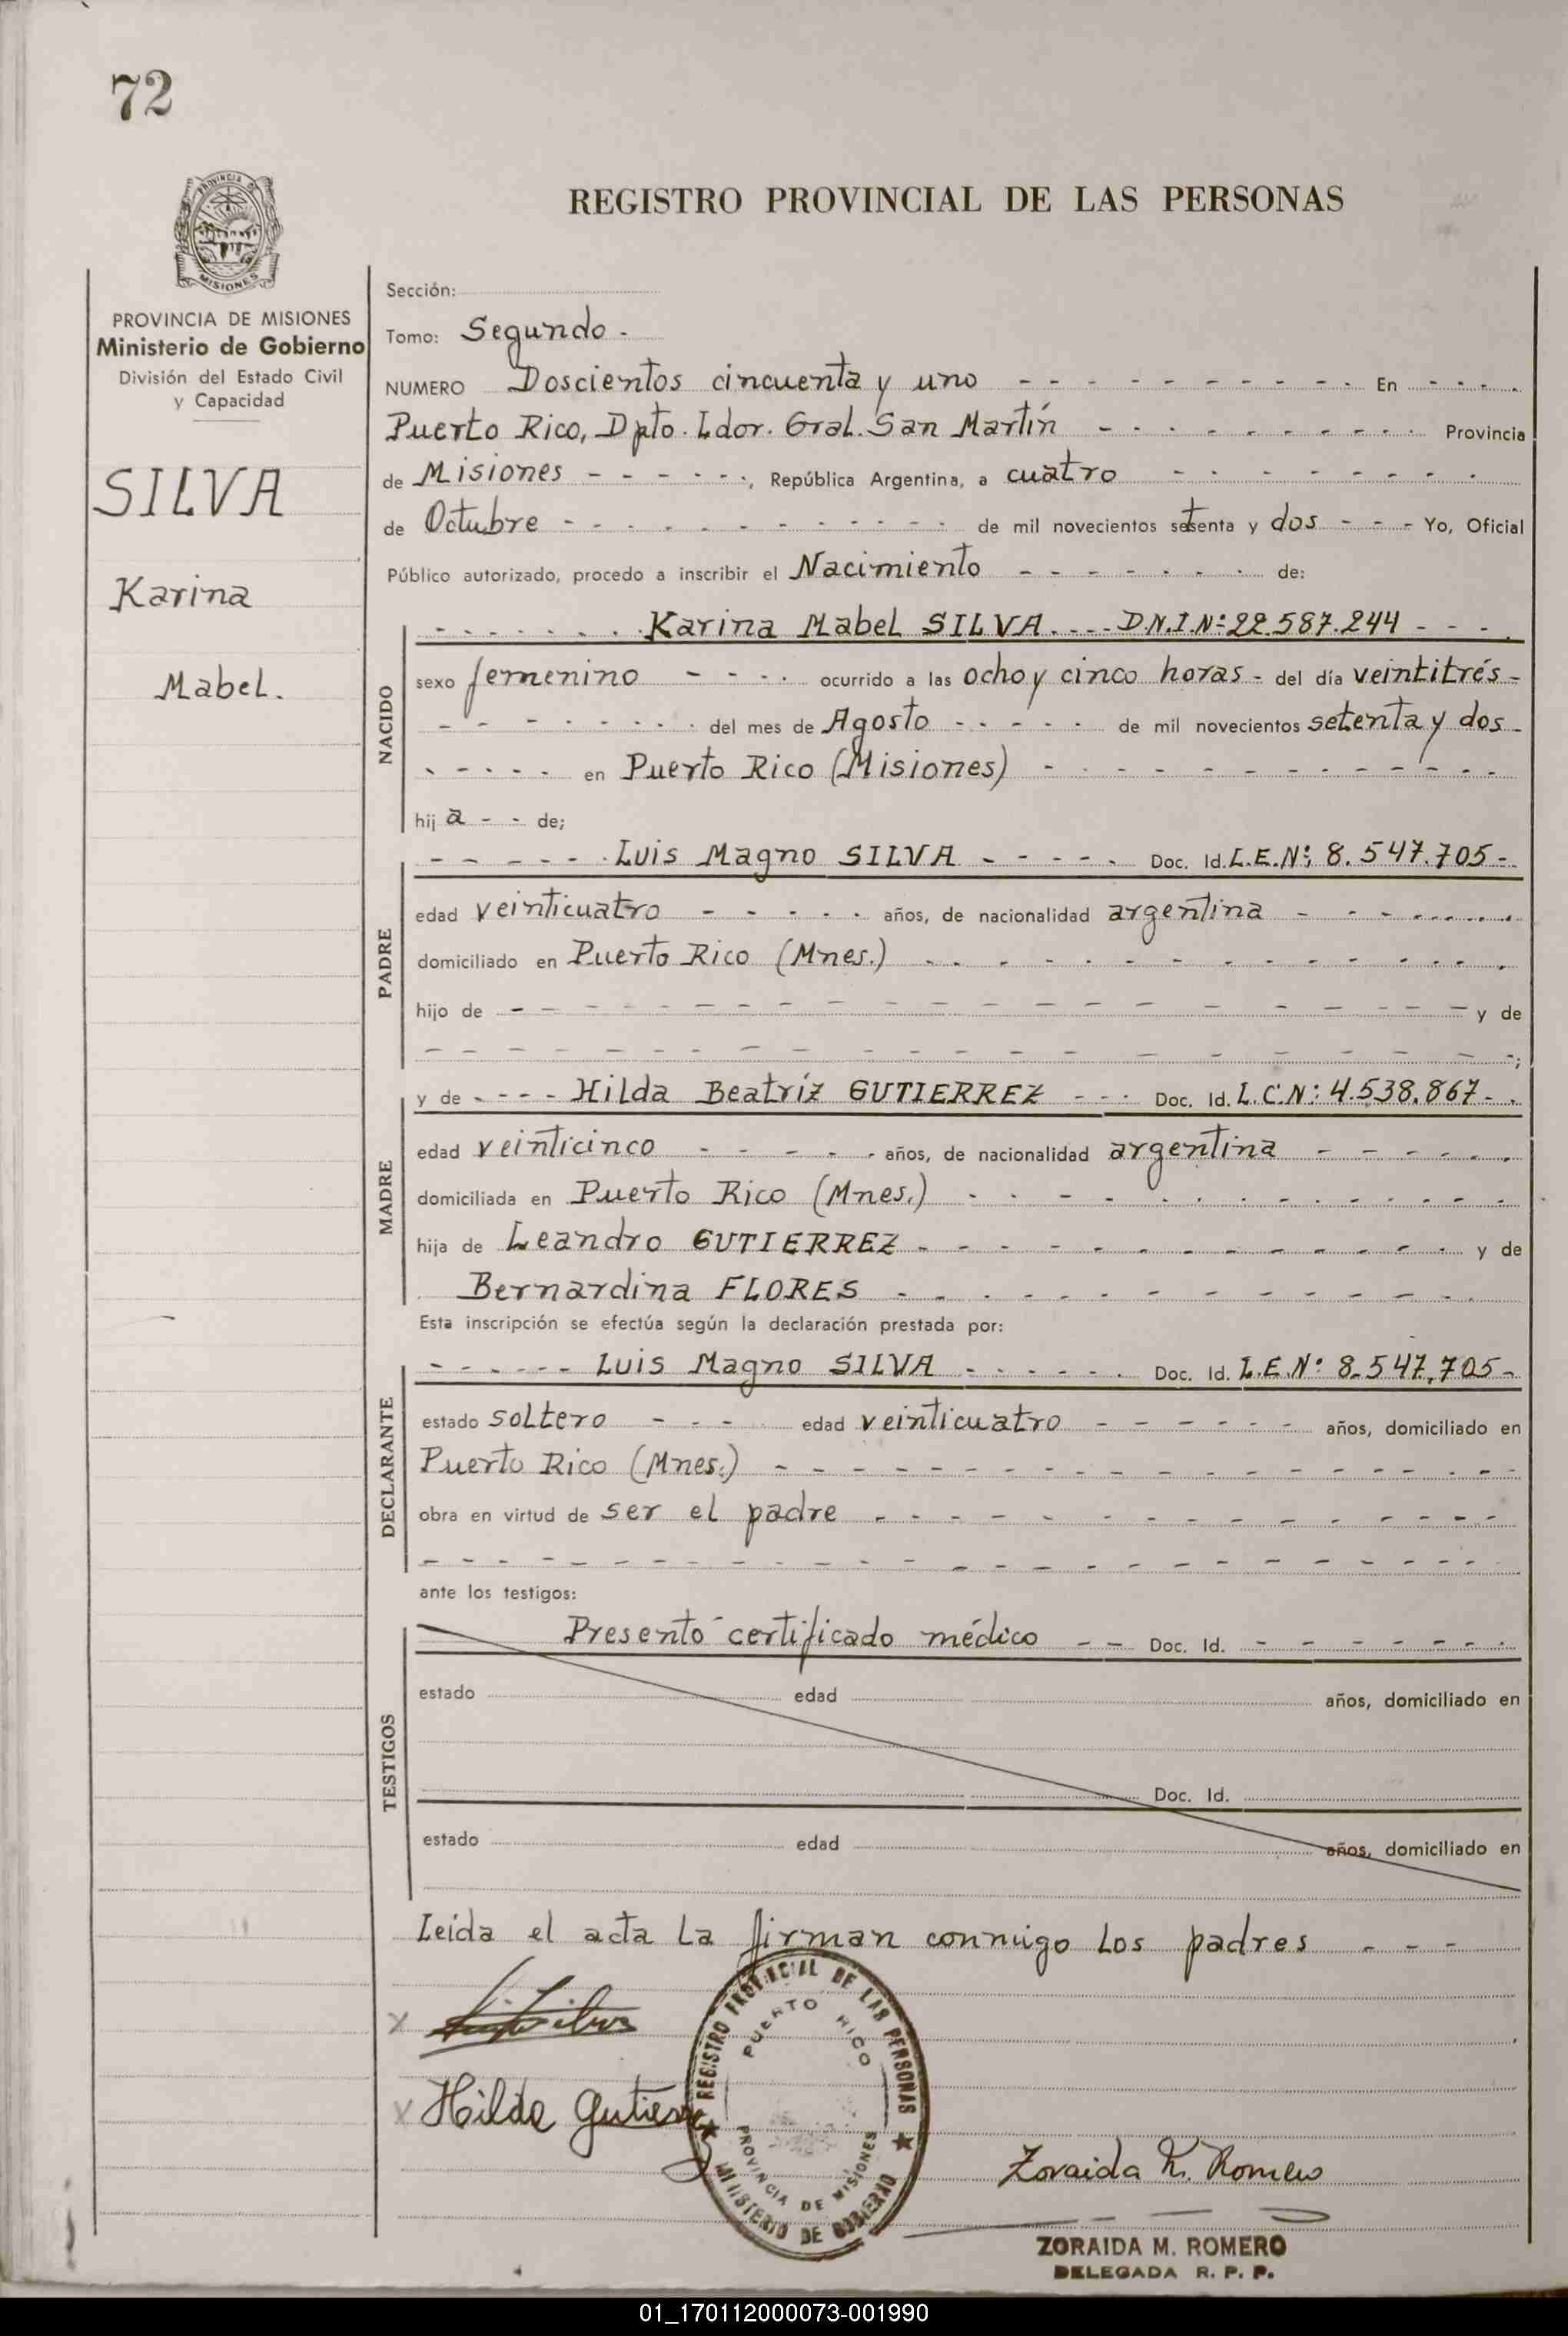 72
PROVINCIA DE
MISIONES
REGISTRO PROVINCIAL DE LAS PERSONAS
PROVINCIA DE MISIONES
Ministerio de Gobierno
División del Estado Civil
y Capacidad
SILVA
Karina
Mabel.
Sección:
Tomo: Segundo -
NUMERO Doscientos cincuenta y uno - - - - - - - - - - En - - - -
Puerto Rico, Dpto. Ldor. Gral. San Martín - - - - - - - - - - Provincia
de Misiones - - - - - -, República Argentina, a cuatro - - - - - - - -
de Octubre - - - - - - - - - - - - de mil novecientos setenta y dos - - - Yo, Oficial
Público autorizado, procedo a inscribir el Nacimiento - - - - - - - de:
NACIDO
- - - - - - - Karina Mabel SILVA. - - - D.N.I.Nº: 22.587.244 - - -
sexo femenino - - - - ocurrido a las ocho y cinco horas - del día veintitrés -
- - - - - - - - del mes de Agosto - - - - - de mil novecientos setenta y dos -
- - - - - en Puerto Rico (Misiones) - - - - - - - - - - - -
hij a - - de;
PADRE
- - - - - - Luis Magno SILVA - - - - - Doc. Id. L.E.Nº: 8.547.705 -
edad veinticuatro - - - - - años, de nacionalidad argentina - - - - - -
domiciliado en Puerto Rico (Mnes.) - - - - - - - - - - - - -
hijo de - - - - - - - - - - - - - - - - - - - y de
- - - - - - - - - - - - - - - - - - - -;
MADRE
y de - - - - Hilda Beatríz GUTIERREZ - - - Doc. Id. L.C.Nº: 4.538.867 - -
edad veinticinco - - - - - años, de nacionalidad argentina - - - - - -
domiciliada en Puerto Rico (Mnes.) - - - - - - - - - - - - -
hija de Leandro GUTIERREZ - - - - - - - - - - - - y de
Bernardina FLORES - - - - - - - - - - - - -
Esta inscripción se efectúa según la declaración prestada por:
DECLARANTE
- - - - - - Luis Magno SILVA - - - - - - Doc. Id. L.E.Nº 8.547.705 -
estado soltero - - - - edad veinticuatro - - - - - - años, domiciliado en
Puerto Rico (Mnes.) - - - - - - - - - - - - - - - - - -
obra en virtud de ser el padre - - - - - - - - - - - - - -
- - - - - - - - - - - - - - - - - - - - - -
ante los testigos:
TESTIGOS
Presentó certificado médico - - Doc. Id. - - - - - - -
estado edad años, domiciliado en
Doc. Id.
estado edad años, domiciliado en
Leída el acta la firman conmigo los padres - - -
x
x Hilda Gutierrez
REGISTRO PROVINCIAL DE LAS PERSONAS
PUERTO RICO
PROVINCIA DE MISIONES
★ MINISTERIO DE GOBIERNO ★
Zoraida M. Romero
ZORAIDA M. ROMERO
DELEGADA R. P. P.
01_170112000073-001990